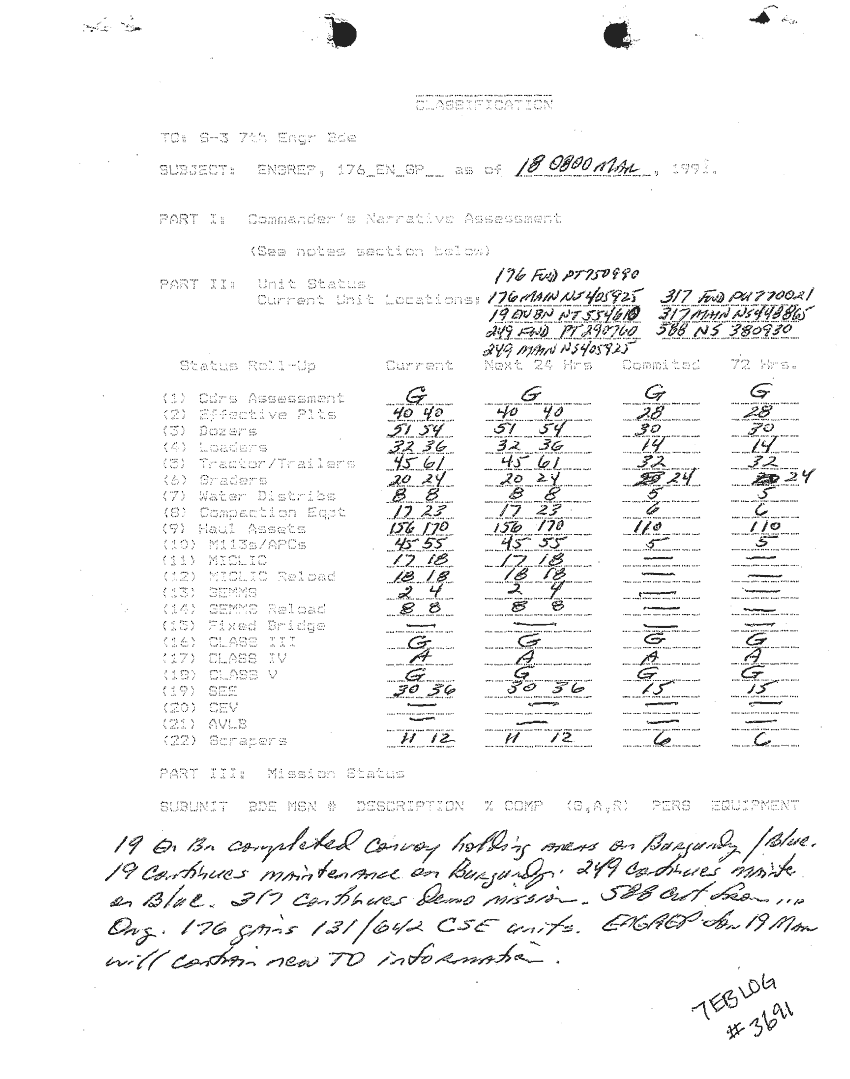 CLASSIFICATION
TO: S-3 7th Engr Bde
SUBJECT: ENGREP, 176_EN_GP__ as of 18 0800 MAR, 1991.
PART I: Commander's Narrative Assessment
(See notes section below)
176 FWD PT750990
PART II: Unit Status
Current Unit Locations: 176 MAIN NS 405925 317 FWD PU 770021
19 EN BN NT 554610 317 MAIN NS448865
249 FWD PT 290760 588 NS 380930
249 MAIN NS405925
Status Roll-Up Current Next 24 Hrs Commited 72 Hrs.
(1) Cdrs Assessment G G G G
(2) Effective Plts 40 40 40 40 28 28
(3) Dozers 51 54 51 54 30 30
(4) Loaders 32 36 32 36 14 14
(5) Tractor/Trailers 45 61 45 61 32 32
(6) Graders 20 24 20 24 24 24
(7) Water Distribs 8 8 8 8 5 5
(8) Compaction Eqpt 17 23 17 23 6 6
(9) Haul Assets 156 170 156 170 110 110
(10) M113s/APCs 45 55 45 55 5 5
(11) MICLIC 17 18 17 18 — —
(12) MICLIC Reload 18 18 18 18 — —
(13) GEMMS 2 4 2 4 — —
(14) GEMMS Reload 8 8 8 8 — —
(15) Fixed Bridge — — — —
(16) CLASS III G G G G
(17) CLASS IV A A A A
(18) CLASS V G G G G
(19) SEE 30 36 30 36 15 15
(20) CEV — — — —
(21) AVLB — — — —
(22) Scrapers 11 12 11 12 6 6
PART III: Mission Status
SUBUNIT BDE MSN # DESCRIPTION % COMP (G,A,R) PERS EQUIPMENT
19 En Bn completed convoy holding areas on Burgundy / Blue.
19 continues maintenance on Burgundy. 249 continues mainte
on Blue. 317 continues Demo mission. 588 out from ...
Org. 176 gains 131/642 CSE units. ENGREP for 19 Mar
will contain new TO information.
7EB LOG
#3691